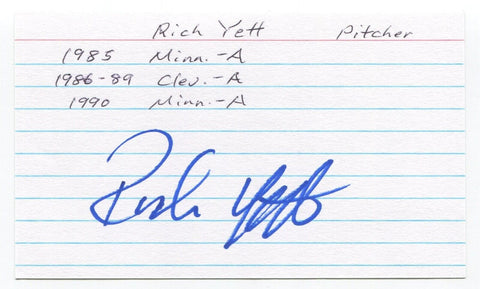 Rich Yett Pitcher
1985 Minn.-A
1986-89 Clev.-A
1990 Minn.-A
Rich Yett